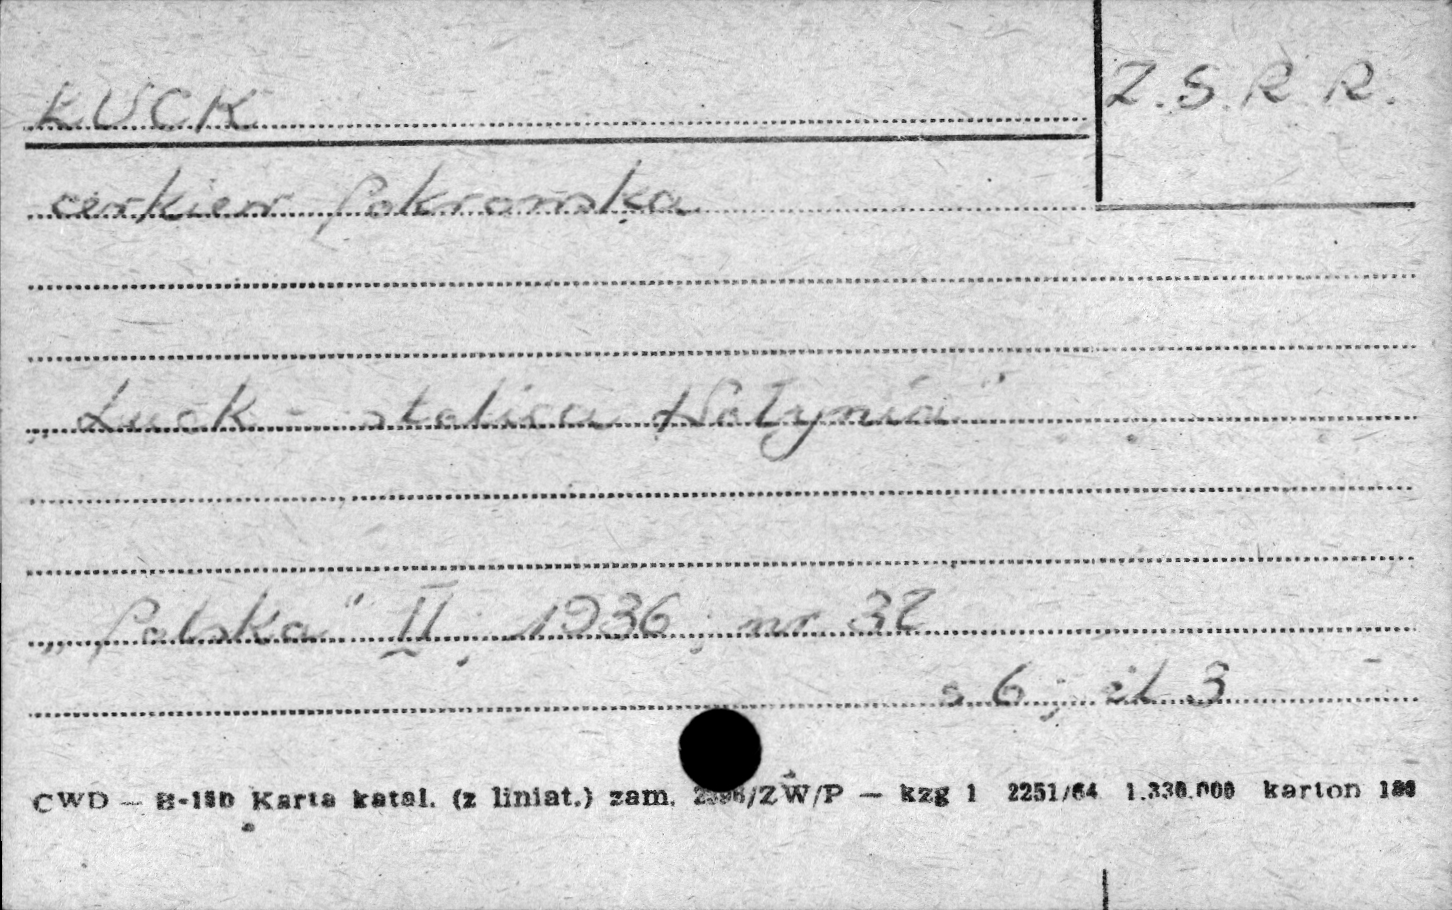 ŁUCK
Z.S.R.R.
cerkiew Pokrowska
„Łuck - stolica Wołynia"
„Polska" II; 1936; nr 32
s. 6; il. 3
CWD — B-180 Karta katal. (z liniat.) zam. /ZW/P — kzg 1 2251/64 1.330.000 karton